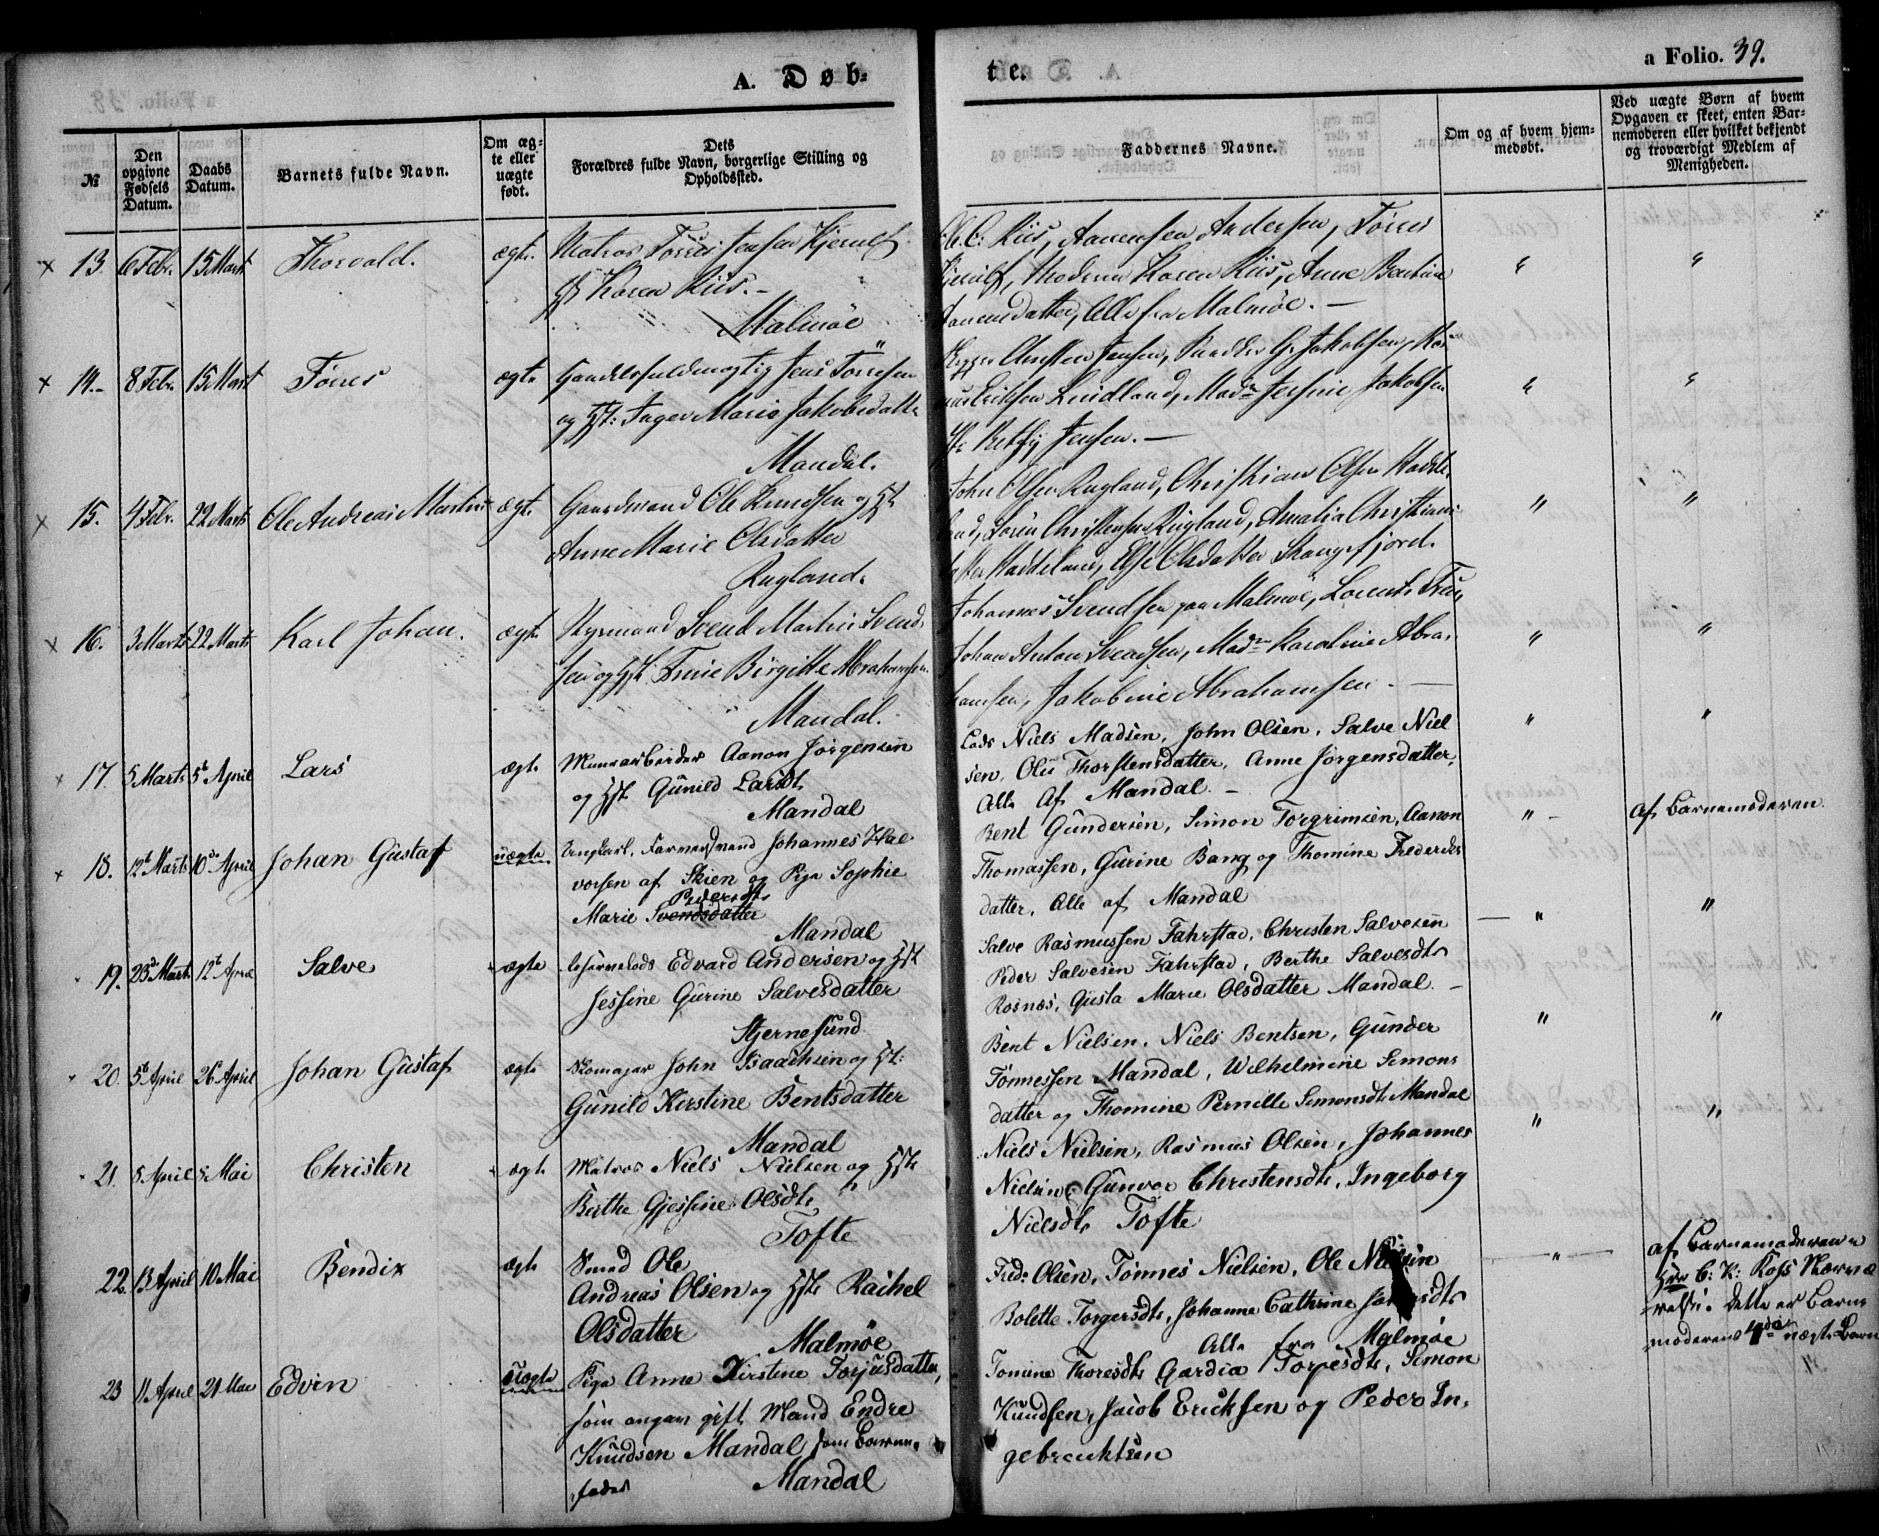 A. Døb-
te.
a Folio. 39.
№
Den opgivne Fødsels Datum.
Daabs Datum.
Barnets fulde Navn.
Om ægte eller uægte født.
Dets Forældres fulde Navn, borgerlige Stilling og Opholdssted.
Faddernes Navne.
Om og af hvem hjemmedøbt.
Ved uægte Børn af hvem Opgaven er skeet, enten Barnemoderen eller hvilket bekjendt og troværdigt Medlem af Menigheden.
13. 6 Febr. 15 Marts Thorvald. ægte. Matros Tørres Jensen Hjerulf
Karen Riis. -
Malmöe
Riis, Aanensen Andersen, Tørres
Moderen Karen Riis, Anne Bentine
datter, Alle fra Malmöe. -
14. 8 Febr. 15 Marts Törres ægte Handelsfuldmægtig Jens Törresen
og Hst: Inger Marie Jakobsdatter
Mandal.
Christen Jensen, G. Jakobsen,
Eriksen Lindland, Madm Jakobsen
Betsy Jensen. -
15. 4 Febr. 22 Marts Ole Andreas Martin ægte Gaardmand Ole Knudsen og Hst
Anne Marie Olsdatter
Rugland.
John Olsen Rugland, Christian Olsen
Sören Christensen Rugland, Amalia Christians
datter, Else Olsdatter Skangefjord.
16. 3 Marts 22 Marts Karl Johan. ægte Styrmand Svend Martin Svend
sen og Hst. Birgitte Abrahamsen
Mandal.
Johannes Svendsen paa Malmöe, Lorents
Johan Anton Svendsen, Madm Karoline Abra-
hamsen, Jakobine Abrahamsen -
17. 5 Marts 5t April Lars ægte Muurarbeider Aanon Jörgensen
og Hst Gunild Larsdt
Mandal
Lods Niels Madsen, John Olsen, Salve Niel
sen, Olu Thorstensdatter, Anne Jörgensdatter,
Alle Af Mandal. -
18. 12t Marts 10de April Johan Gustaf uægte Ungkarl, Johannes Hal
vorsen af Skien og Pige Sophie
Pedersdt
Marie Svendsdatter
Mandal
Bent Gundersen, Simon Torgrimsen, Aanon
Thomassen, Gurine Bang og Thomine Frederiks
datter, Alle af Mandal
Af Barnemoderen
19. 23d Marts 12t April Salve ægte Edvard Andersen og Hst
Jessine Gurine Salvesdatter
Stjernesund
Salve Rasmussen Fahrstad, Christen Salvesen
Peder Salvesen Fahrstad, Berthe Salvesdt
Rosnæs, Gusta Marie Olsdatter Mandal. -
20. 5t April 26 April Johan Gustaf ægte Skomager John Isaachsen og Hst:
Gunild Kirstine Bentsdatter
Mandal
Bent Nielsen, Niels Bentsen, Gunder
Tönnessen Mandal, Wilhelmine Simons
datter og Thomine Pernille Simonsdt Mandal
21. 5 April 5 Mai Christen ægte Matros Niels Nielsen og Hst
Berthe Gjessine Olsdt
Tofte
Niels Nielsen, Rasmus Olsen, Johannes
Nielsen, Gunvor Christensdt, Ingeborg
Nielsdt Tofte
22. 13 April 10 Mai Bendix ægte Smed Ole
Andreas Olsen og Hst Rachel
Olsdatter
Malmöe
Fredr Olsen, Tönnes Nielsen, Ole Nielsen
Bolette Torgersdt, Johanne Cathrine
Alle fra Malmöe
23 11 April 21 Mai Edvin uægte Pige Anne Kirstine Torjusdatter,
som angav gift Mand Endre
Knudsen Mandal som Barne-
fader
Mandal
Tomine Thoresdt Gardia Torjesdt, Simon
Knudsen, Jacob Ericksen og Peder In-
gebrecktsen
af Barnemoderen
Hrr C: K: Ross Nærvæ
relse. Dette er Barne
moderens 4de uægte Barn